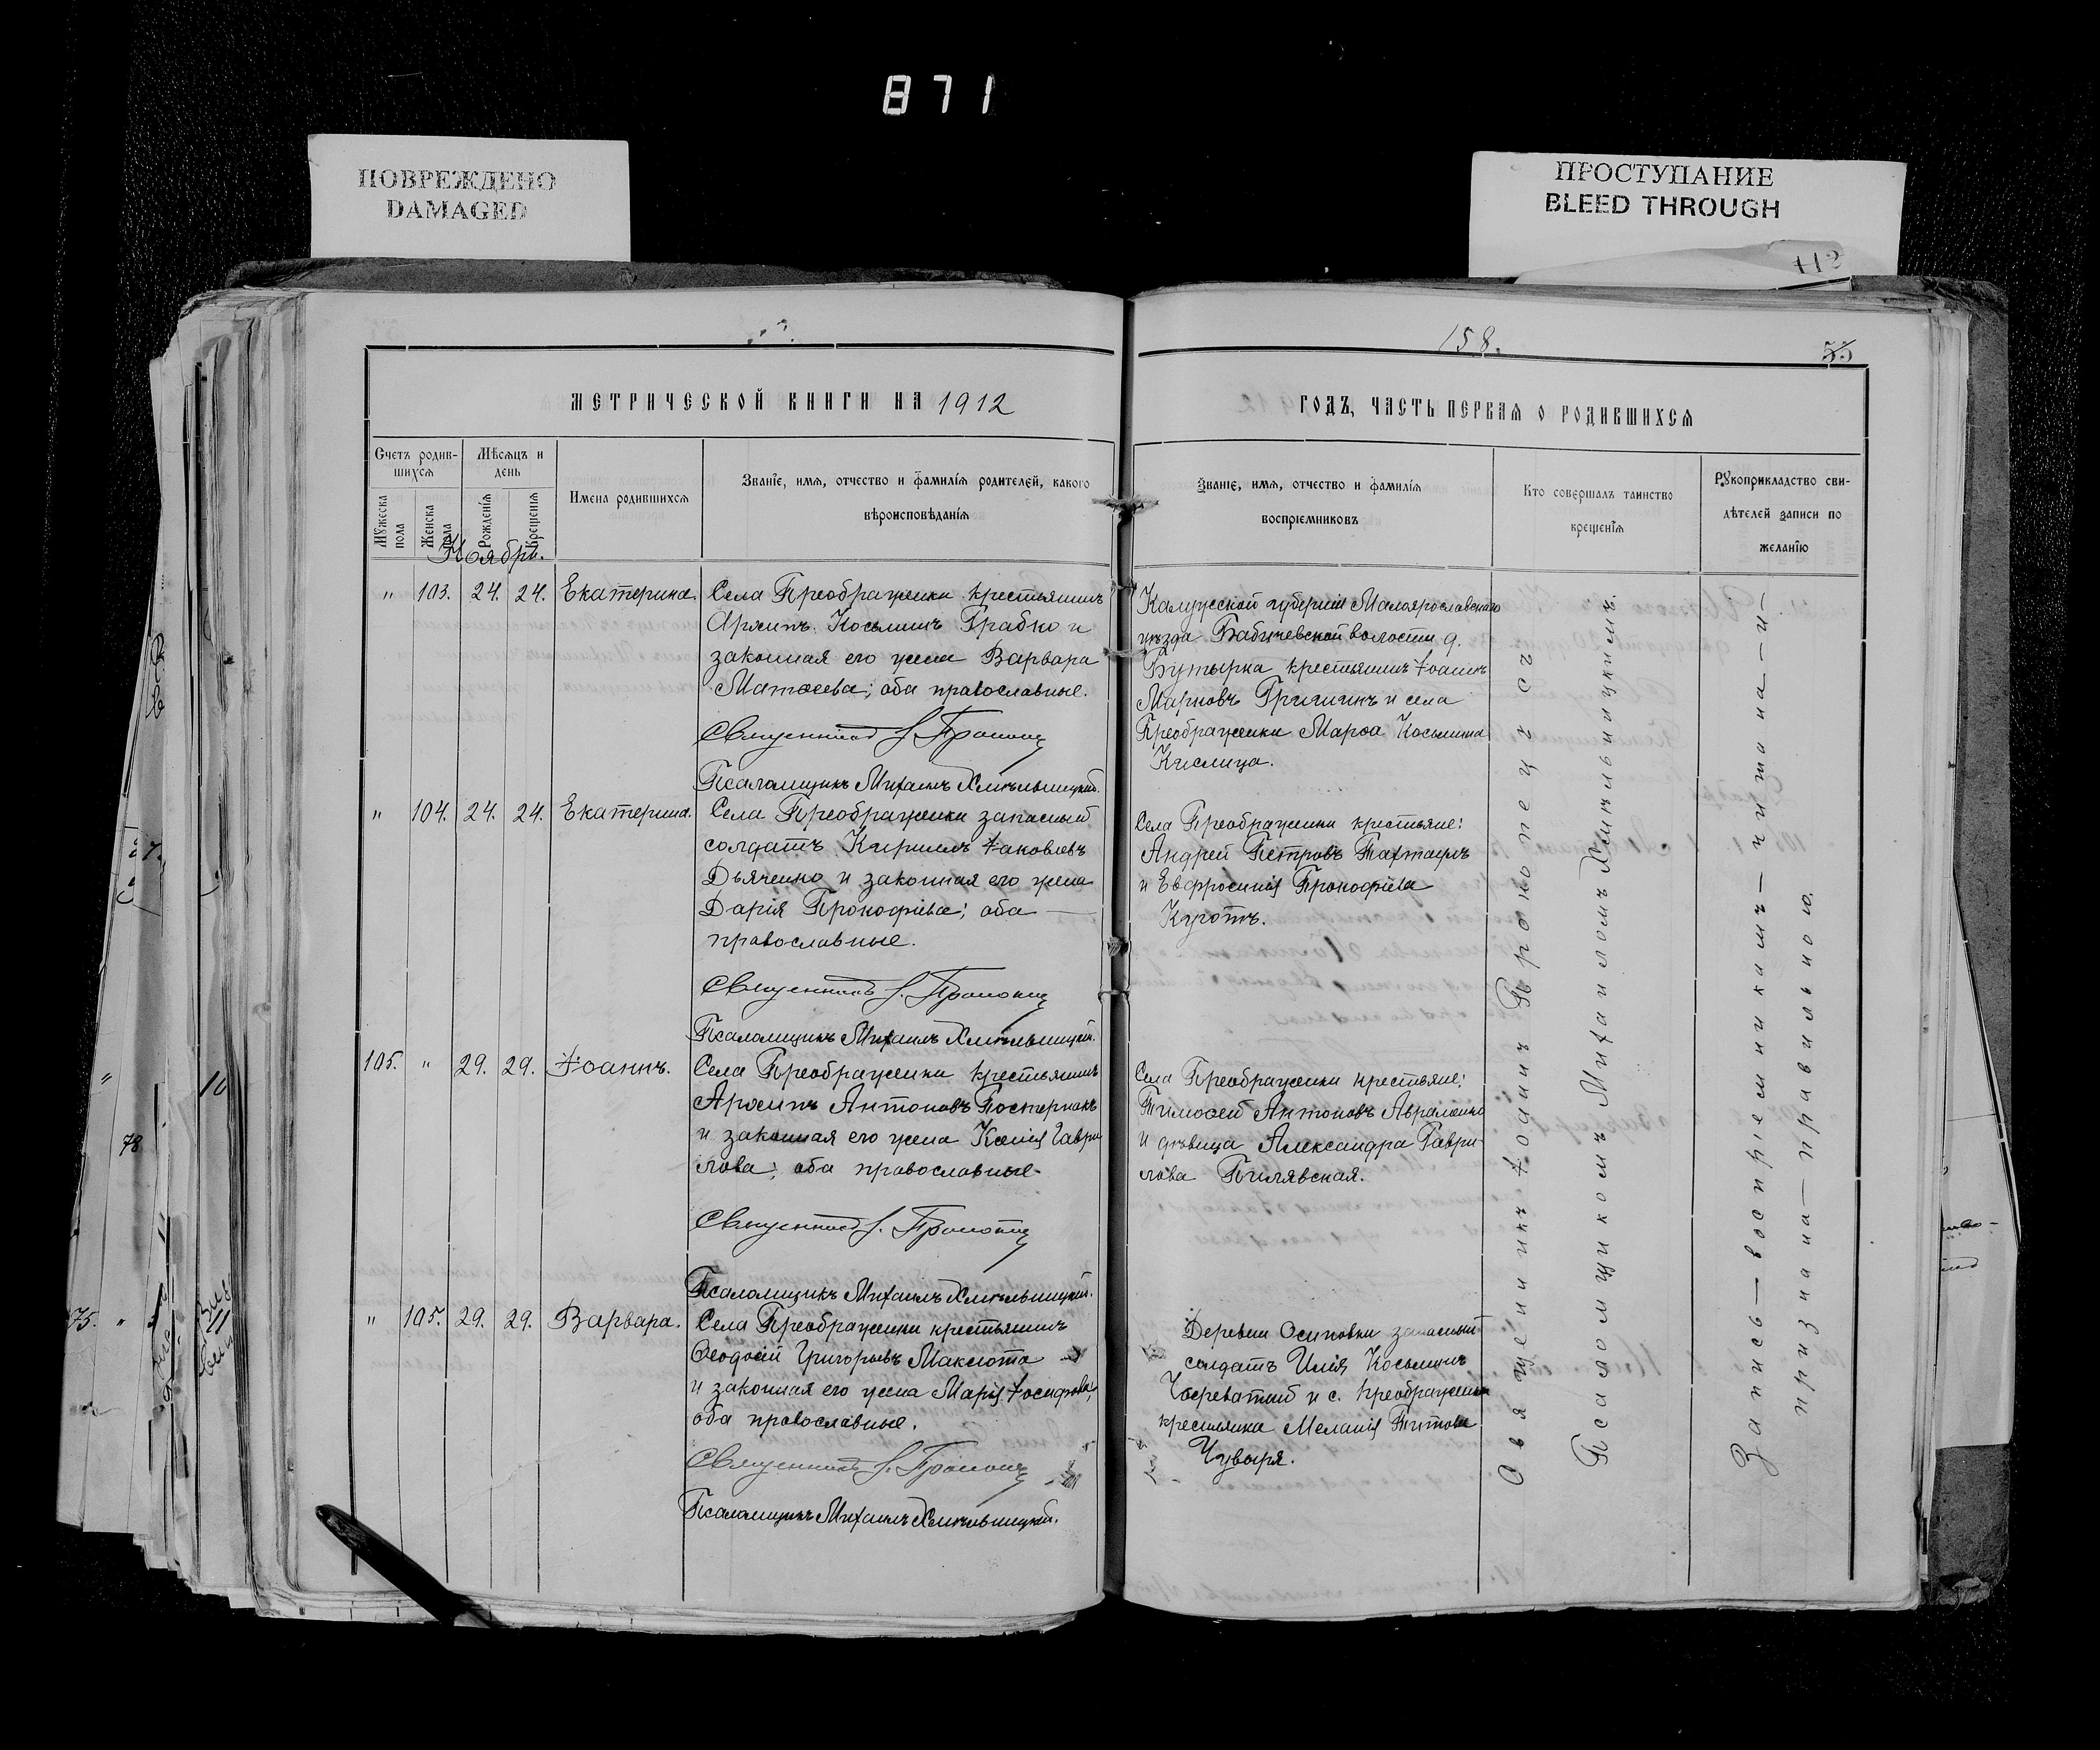 871
ПОВРЕЖДЕНО
DAMAGED
ПРОСТУПАНИЕ
BLEED THROUGH
112
158.
55
МЕТРИЧЕСКОЙ КНИГИ НА 1912
ГОДЪ, ЧАСТЬ ПЕРВАЯ О РОДИВШИХСЯ
Счетъ родив-
шихся
Мужеска пола
Женска пола
Мѣсяцъ и
день
Рожденія
Крещенія
Имена родившихся
Званіе, имя, отчество и фамилія родителей, какого
вѣроисповѣданія
Званіе, имя, отчество и фамилія
воспріемниковъ
Кто совершалъ таинство
крещенія
Рукоприкладство сви-
дѣтелей записи по
желанію
Ноябрь.
" 103. 24. 24. Екатерина.
Села Преображенки крестьянинъ
Архипъ Косьминъ Грабко и
законная его жена Варвара
Матѳеева; оба православные.
Священникъ І. Прокопец
Псаломщикъ Михаилъ Хмѣльницкій.
Калужской губерніи Малоярославскаго
уѣзда Бабичевской волости д.
Бутырка крестьянинъ Іоаннъ
Марковъ Гришинъ и села
Преображенки Марѳа Косьмина
Кислица.
" 104. 24. 24. Екатерина.
Села Преображенки запасный
солдатъ Кириллъ Іаковлевъ
Дьяченко и законная его жена
Дарія Прокофіева; оба —
православные.
Священникъ І. Прокопец
Псаломщикъ Михаилъ Хмѣльницкій.
Села Преображенки крестьяне:
Андрей Петровъ Тахтаулъ
и Евфросинія Прокофіева
Куротъ.
105. " 29. 29. Іоаннъ.
Села Преображенки крестьянинъ
Архипъ Антоновъ Постернакъ
и законная его жена Ксенія Гаври
лова; оба православные.
Священникъ І. Прокопец
Псаломщикъ Михаилъ Хмѣльницкій.
Села Преображенки крестьяне:
Тимоѳей Антоновъ Авраменко
и дѣвица Александра Гаври-
лова Пилявская.
" 105. 29. 29. Варвара.
Села Преображенки крестьянинъ
Ѳеодосій Григорьевъ Максюта
и законная его жена Марія Іосифова;
оба православные.
Священникъ І. Прокопец
Псаломщикъ Михаилъ Хмѣльницкій.
Деревни Осиповки запасный
солдатъ Илія Косьминъ
Чосреватый и с. Преображенки
крестьянка Меланія Титова
Чувыря.
Священникъ Іоаннъ Прокопец съ
Псаломщикомъ Михаиломъ Хмѣльницкимъ.
Запись — воспріемникамъ — читана — и —
признана — правильною.
78
75. "
10